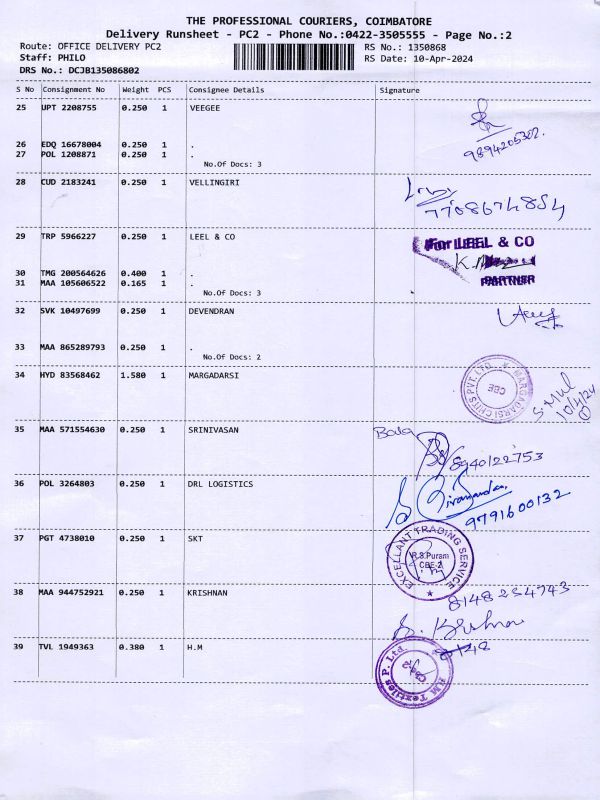 THE PROFESSIONAL COURIERS, COIMBATORE
Delivery Runsheet - PC2 - Phone No.:0422-3505555 - Page No.:2
Route: OFFICE DELIVERY PC2 RS No.: 1350868
Staff: PHILO RS Date: 10-Apr-2024
DRS No.: DCJB135086802
S No Consignment No Weight PCS Consignee Details Signature
25 UPT 2208755 0.250 1 VEEGEE
26 EDQ 16678004 0.250 1 .
9894205302.
27 POL 1208871 0.250 1 .
No.Of Docs: 3
28 CUD 2183241 0.250 1 VELLINGIRI
7708674854
29 TRP 5966227 0.250 1 LEEL & CO
For LEEL & CO
30 TMG 200564626 0.400 1 .
31 MAA 105606522 0.165 1 .
PARTNER
No.Of Docs: 3
32 SVK 10497699 0.250 1 DEVENDRAN
33 MAA 865289793 0.250 1 .
No.Of Docs: 2
34 HYD 83568462 1.580 1 MARGADARSI
MARGADARSI CHITS PVT LTD.
CBE
10/4/24
35 MAA 571554630 0.250 1 SRINIVASAN
Bala
8940122753
36 POL 3264803 0.250 1 DRL LOGISTICS
9791600132
37 PGT 4738010 0.250 1 SKT
EXCELLANT TRADING SERVICE
R.S.Puram
CBE-2
38 MAA 944752921 0.250 1 KRISHNAN
8148254743
39 TVL 1949363 0.380 1 H.M
H.M Textiles P. Ltd.